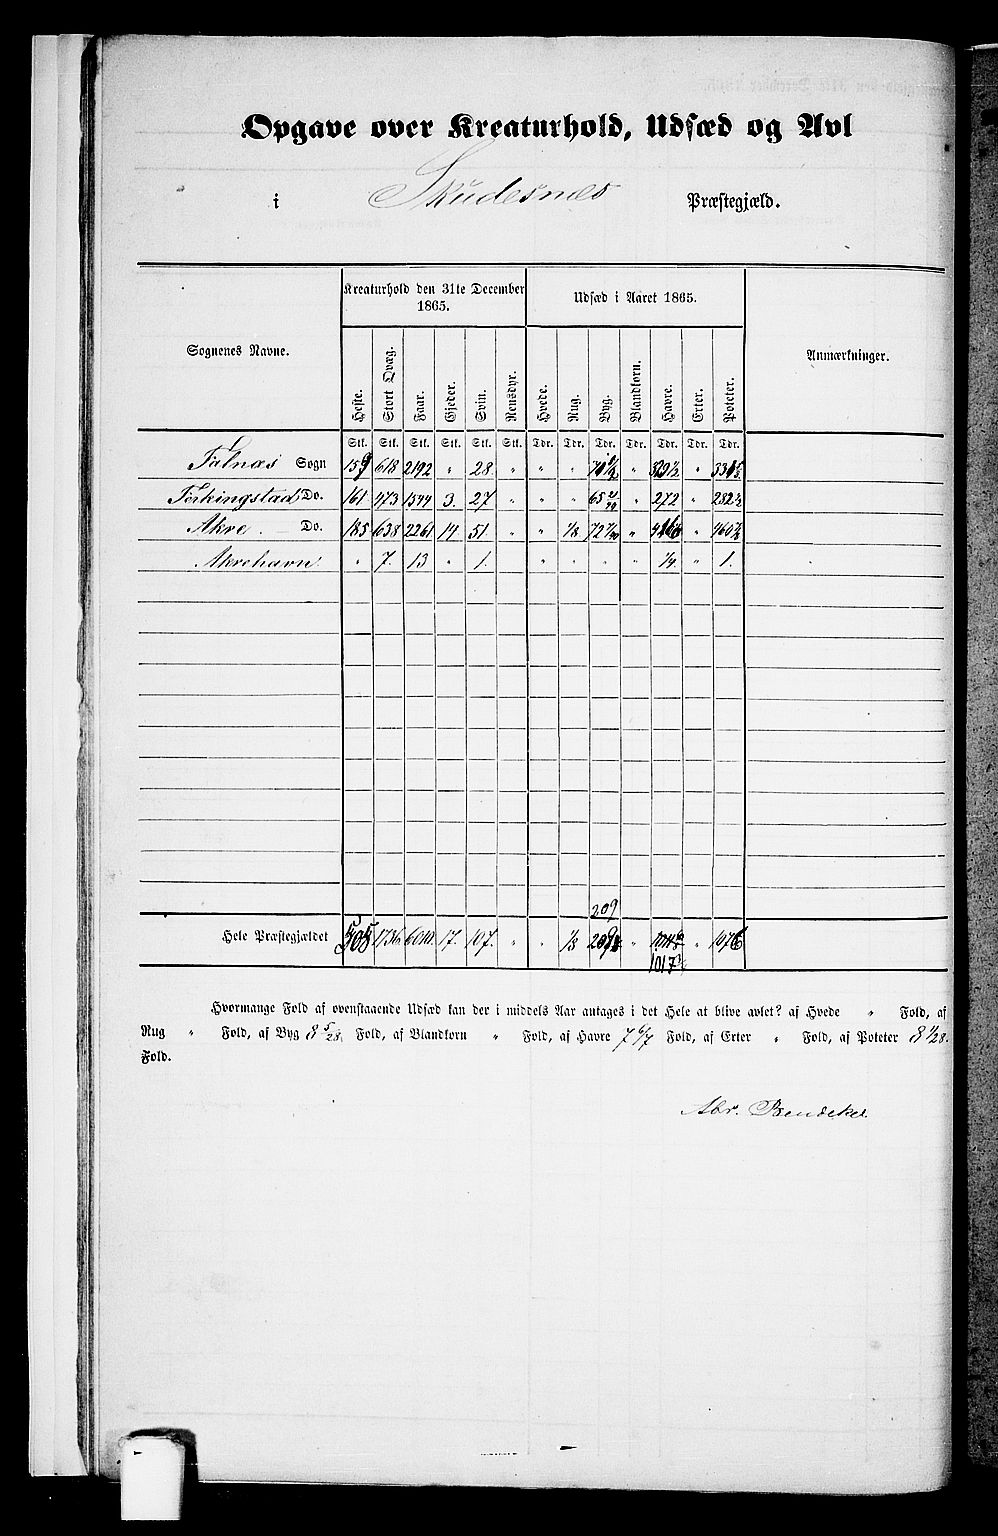 Opgave over Kreaturhold, Udsæd og Avl
i Skudesnæs Præstegjæld.
Sognenes Navne. Kreaturhold den 31te December 1865. Udsæd i Aaret 1865. Anmærkninger.
Heste. Stort Qvæg. Faar. Gjeder. Svin. Rensdyr. Hvede. Rug. Byg. Blandkorn. Havre. Erter. Poteter.
Stk. Stk. Stk. Stk. Stk. Stk. Tdr. Tdr. Tdr. Tdr. Tdr. Tdr. Tdr.
Falnæs Sogn 159 618 2192 " 28 " " " " "
Ferkingstad Do. 161 473 1544 3. 27 " " " 65 " 272 " 282 ½
Akre Do. 185 638 2261 14 51. " " 1/8 72 " "
Akrehavn " 7. 13 " 1. " " " " " ¼ " 1.
209
Hele Præstegjældet 505 1736 6010 17. 107. " " 1/8 " " 1076
1017
Hvormange Fold af ovenstaaende Udsæd kan der i middels Aar antages i det Hele at blive avlet? af Hvede " Fold, af
Rug " Fold, af Byg 8 5/28 Fold, af Blandkorn " Fold, af Havre 7 6/7 Fold, af Erter " Fold, af Poteter 8 1/28.
Fold.
Abr. Bendeke